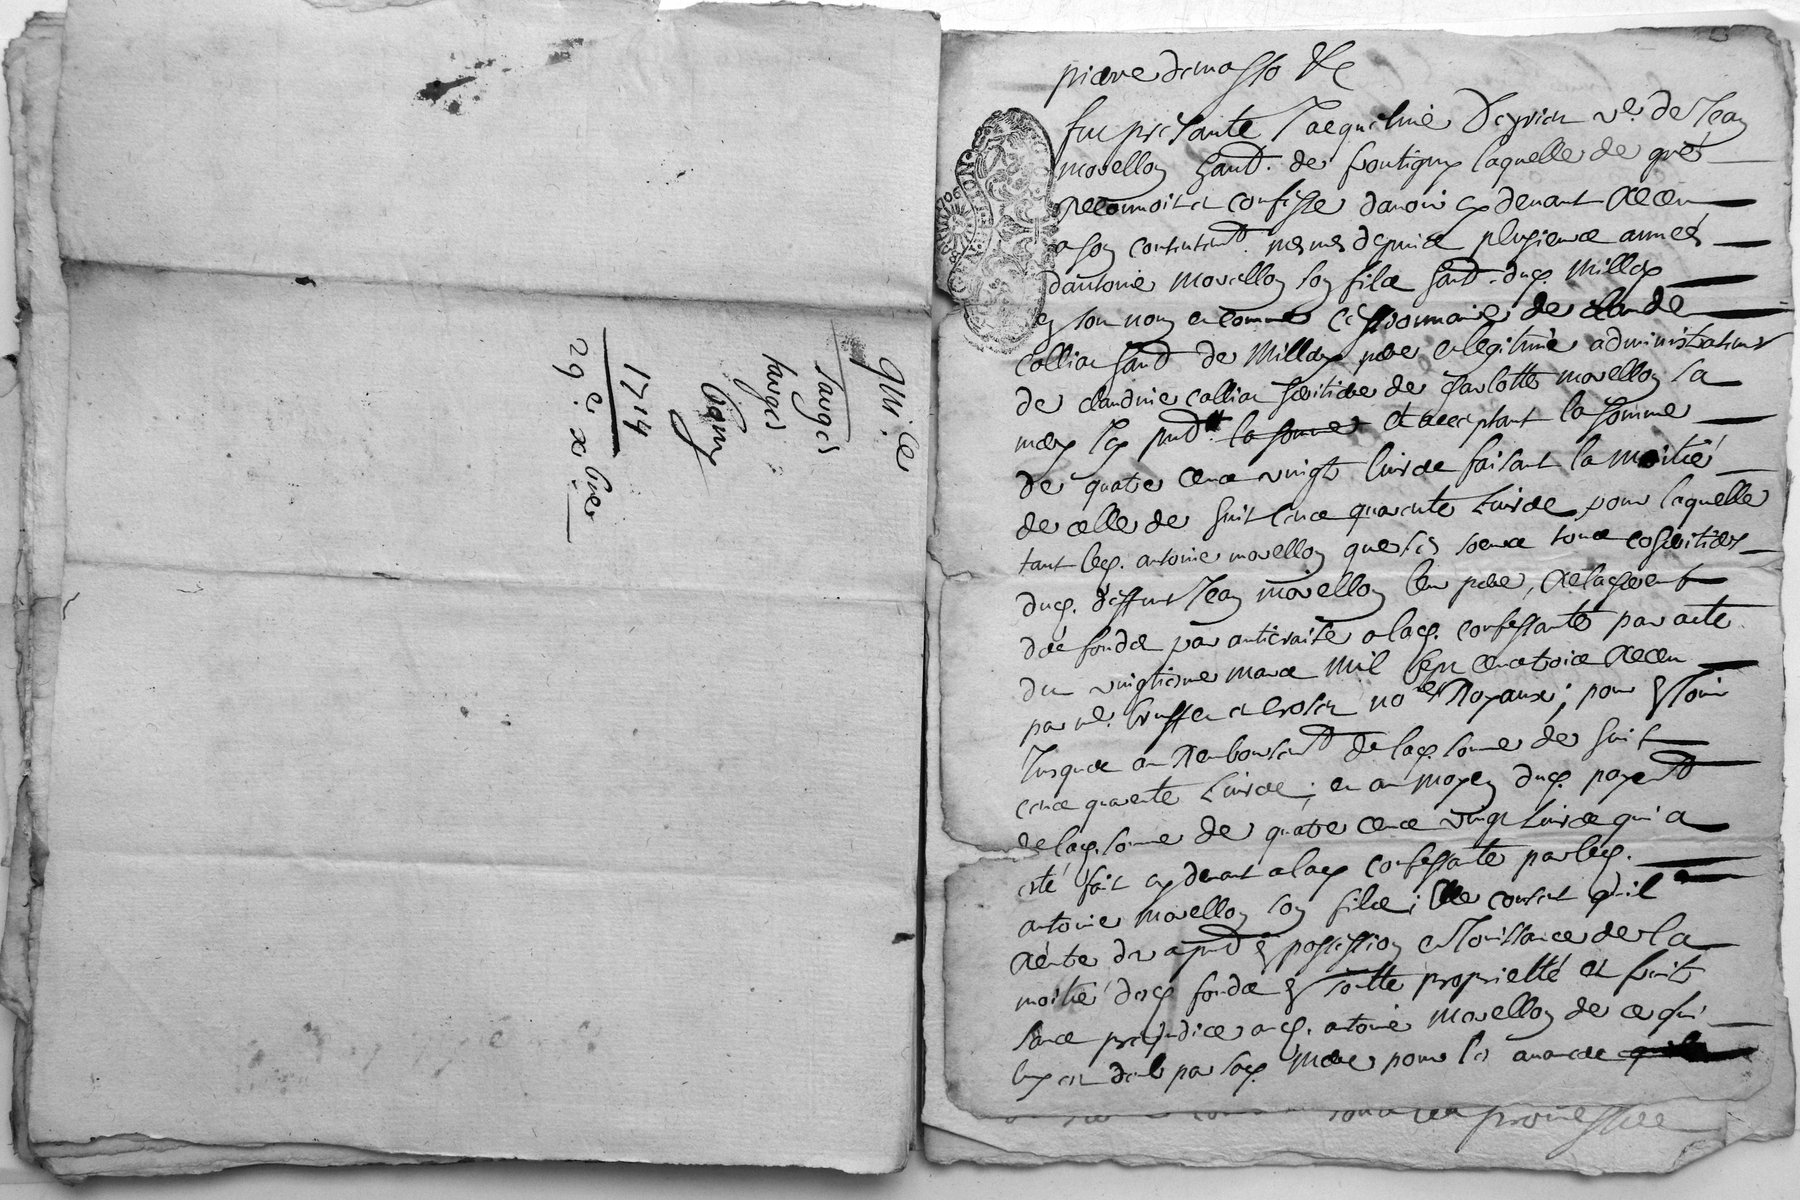 qui.ce
1714
29.e xbre
pierre demasso &c
fut presante Jacqueline Deyrieu v.e de Jean
morellon habt. de frontigny laquelle de gré
reconnoit et confesse davoir cy devant receu
a son contentemt. mesmes depuis plusieurs années
dantoine morellon son fils habt. dud. Millery
en son nom et comme cessionnaire de claude
collia habt de Millery pere et legitime administrateur
de claudine collia heritiere de charlotte morellon sa
mere icy pnt. la somme et acceptant la somme
de quatre cens vingt livres faisant la moitié
de celle de huit cens quarente Livres pour laquelle
tant led. antoine morellon que ses soeurs tous coheritiers
dud. deffunt Jean morellon leur pere, relacherent
des fonds par anticraise a lad. confessante par acte
du vingtieme mars mil sept cens trois receu
par me. et no.res Royaux; pour en Jouir
Jusques au Remboursemt de lad. somme de huit
cens quarente Livres; et au moyen dud. payemt
de lad. somme de quatre cens vingt Livres qui a
eté fait cy devant a lad confessante par led.
antoine morellon son fils; Elle consent qu'il
rentre des a pnt en possession et Jouissance de la
moitié desd fonds en toutte proprietté et fruits
sans prejudice aud. antoine Morellon de ce qui
luy est deub par sad. mere pour les avances